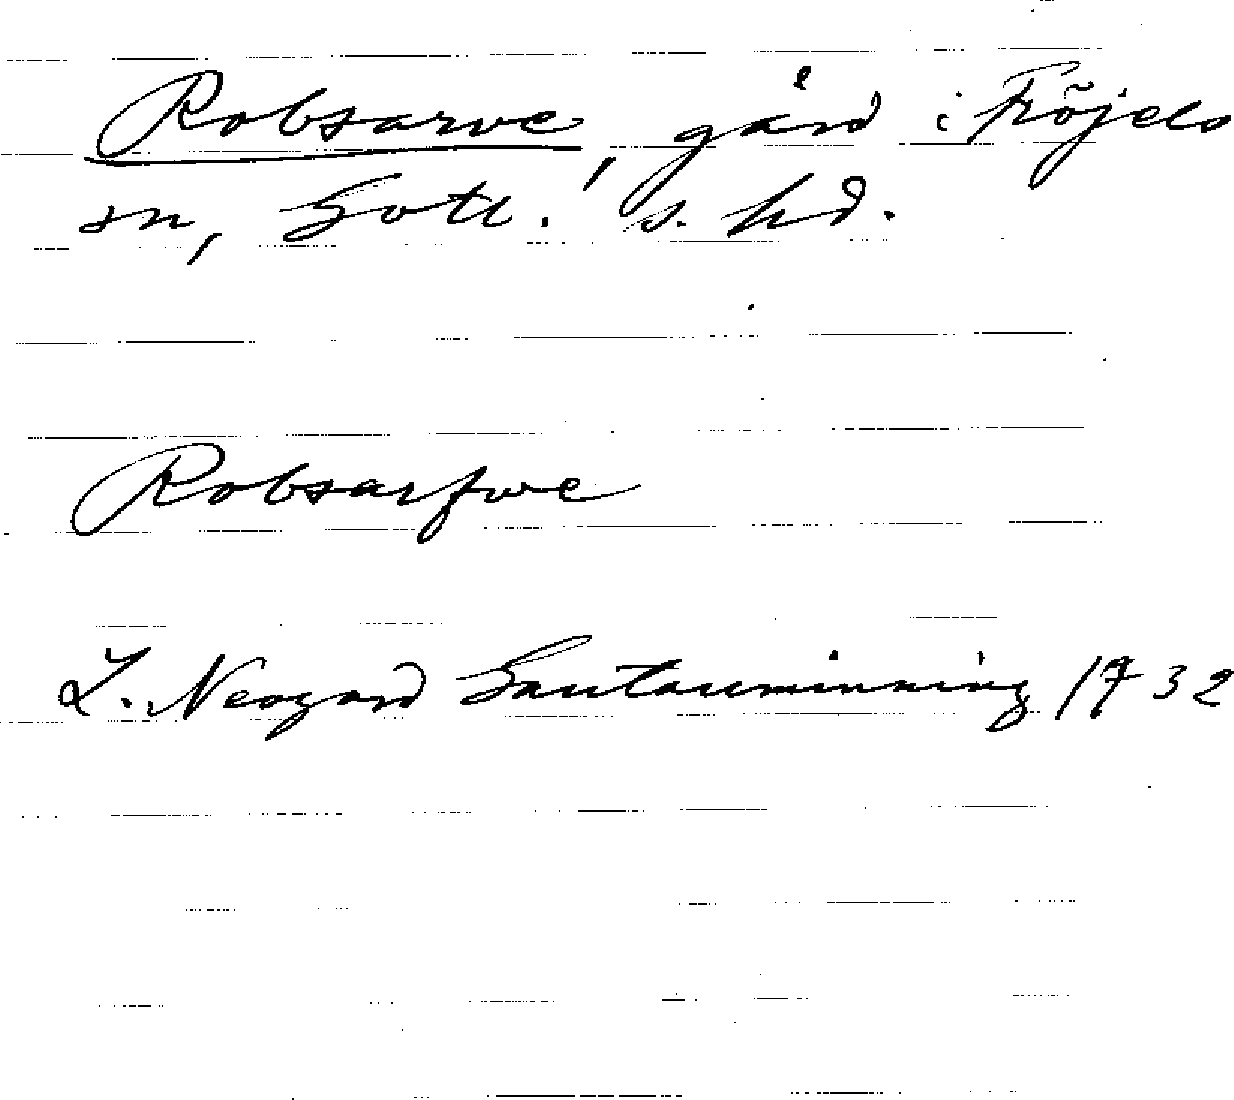 Robsarve, gård i Fröjels
sn, Gotl. s. hd.
Robsarfwe
L. Neogard Gautauminning 1732